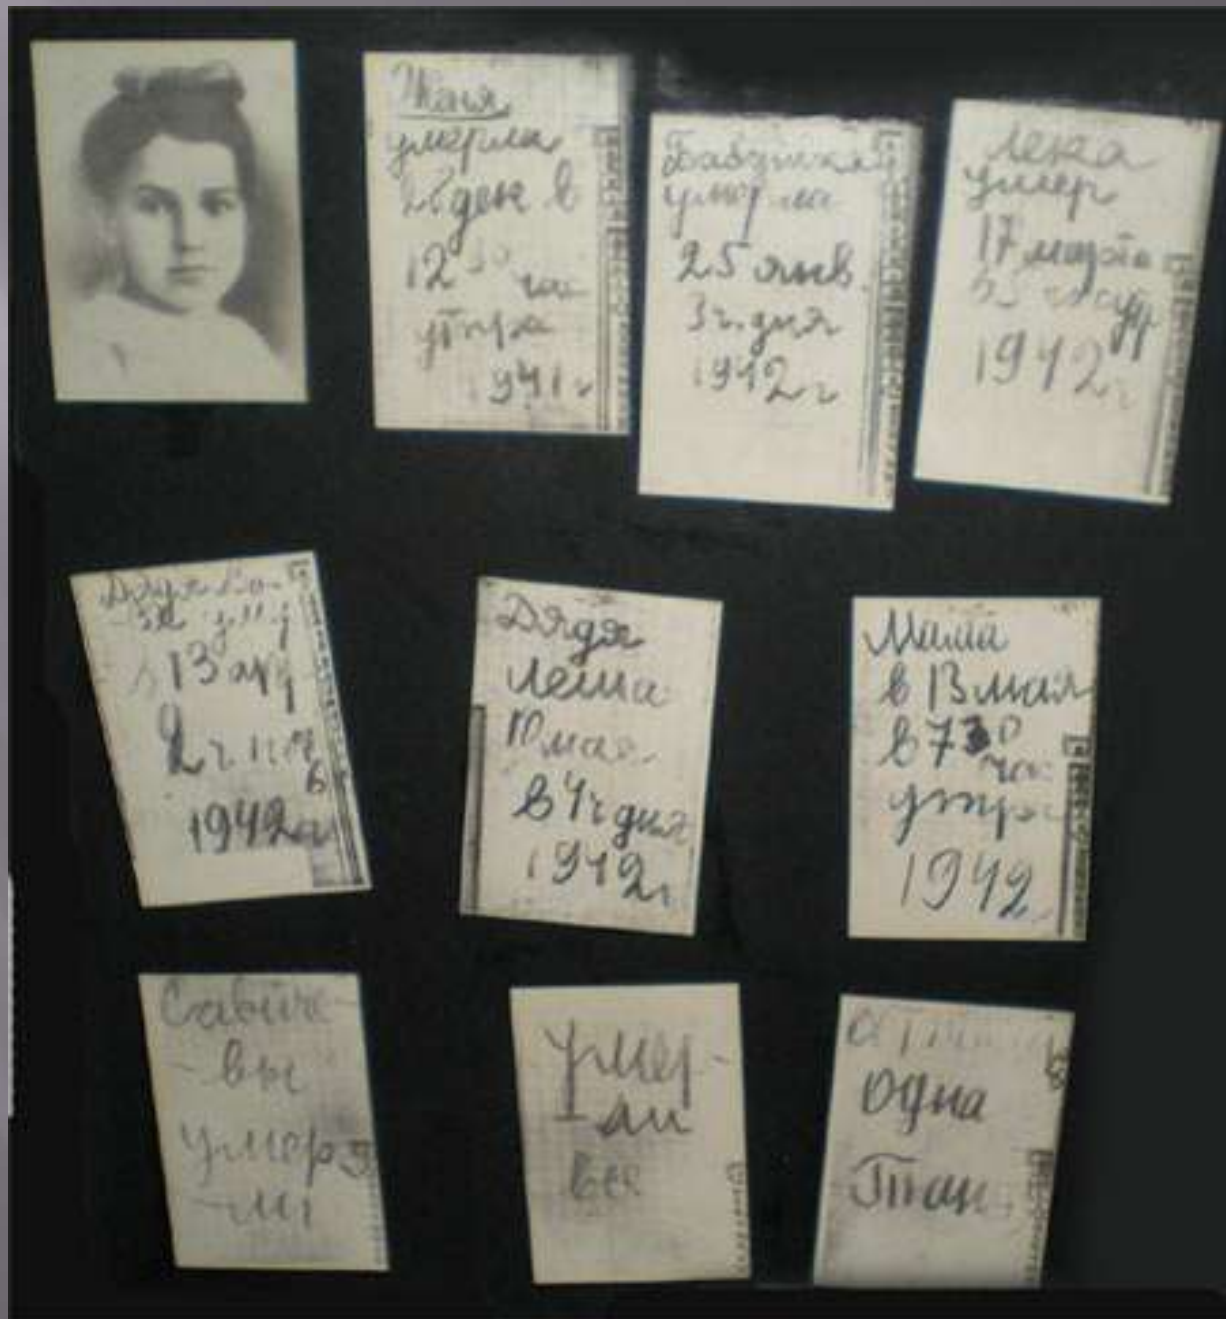 Женя
умерла
28 дек в
12 30 час
утра
1941 г
Бабушка
умерла
25 янв.
3 ч. дня
1942 г
Лека
умер
17 марта
в 5 час утр
1942 г
Дядя Ва-
ся умер
в 13 апр
2 ч ноч
1942 г
Дядя
Леша
10 мая
в 4 ч дня
1942 г
Мама
в 13 мая
в 7 30 час
утра
1942
Савиче-
-вы
умер
-ли
Умер-
-ли
все
одна
Таня